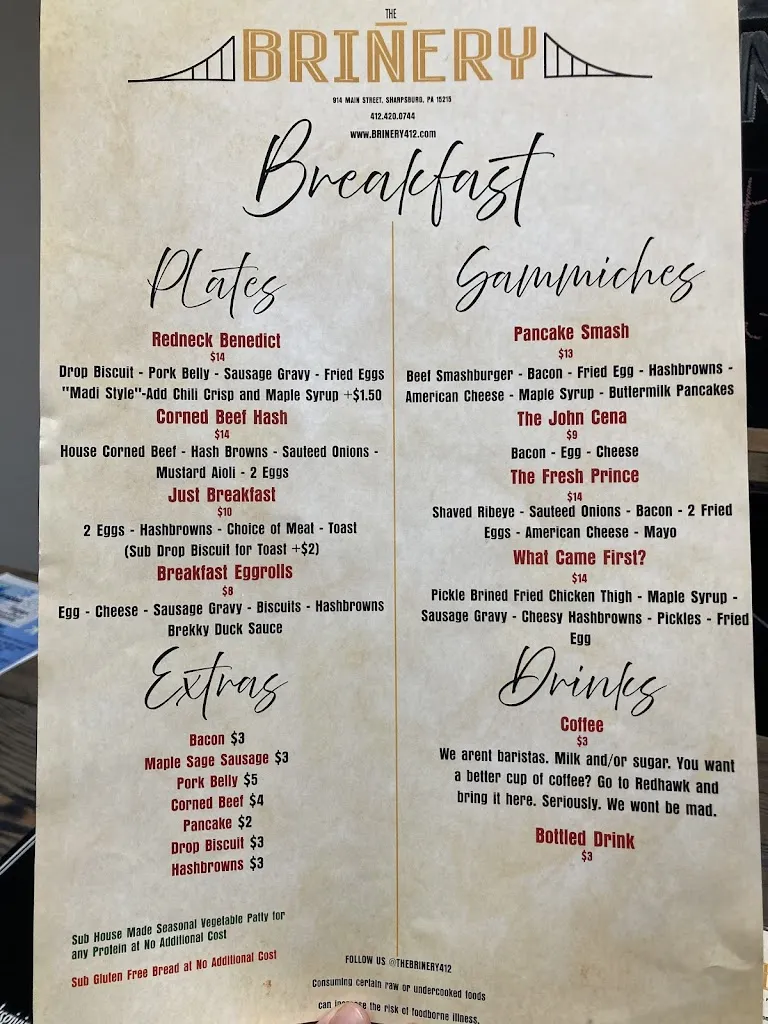 THE
BRIÑERY
914 MAIN STREET, SHARPSBURG, PA 15215
412.420.0744
www.BRINERY412.com
Breakfast
Plates
Redneck Benedict
$14
Drop Biscuit - Pork Belly - Sausage Gravy - Fried Eggs
"Madi Style"-Add Chili Crisp and Maple Syrup +$1.50
Corned Beef Hash
$14
House Corned Beef - Hash Browns - Sauteed Onions -
Mustard Aioli - 2 Eggs
Just Breakfast
$10
2 Eggs - Hashbrowns - Choice of Meat - Toast
(Sub Drop Biscuit for Toast +$2)
Breakfast Eggrolls
$8
Egg - Cheese - Sausage Gravy - Biscuits - Hashbrowns
Brekky Duck Sauce
Extras
Bacon $3
Maple Sage Sausage $3
Pork Belly $5
Corned Beef $4
Pancake $2
Drop Biscuit $3
Hashbrowns $3
Sub House Made Seasonal Vegetable Patty for
any Protein at No Additional Cost
Sub Gluten Free Bread at No Additional Cost
Sammiches
Pancake Smash
$13
Beef Smashburger - Bacon - Fried Egg - Hashbrowns -
American Cheese - Maple Syrup - Buttermilk Pancakes
The John Cena
$9
Bacon - Egg - Cheese
The Fresh Prince
$14
Shaved Ribeye - Sauteed Onions - Bacon - 2 Fried
Eggs - American Cheese - Mayo
What Came First?
$14
Pickle Brined Fried Chicken Thigh - Maple Syrup -
Sausage Gravy - Cheesy Hashbrowns - Pickles - Fried
Egg
Drinks
Coffee
$3
We arent baristas. Milk and/or sugar. You want
a better cup of coffee? Go to Redhawk and
bring it here. Seriously. We wont be mad.
Bottled Drink
$3
FOLLOW US @THEBRINERY412
Consuming certain raw or undercooked foods
can the risk of foodborne illness.